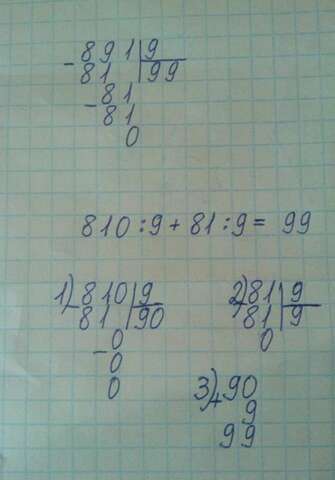 - 891 | 9
81 | 99
- 81
81
0
810 : 9 + 81 : 9 = 99
1) - 810 | 9
81 | 90
- 0
0
0
2) - 81 | 9
81 | 9
0
3) + 90
9
99